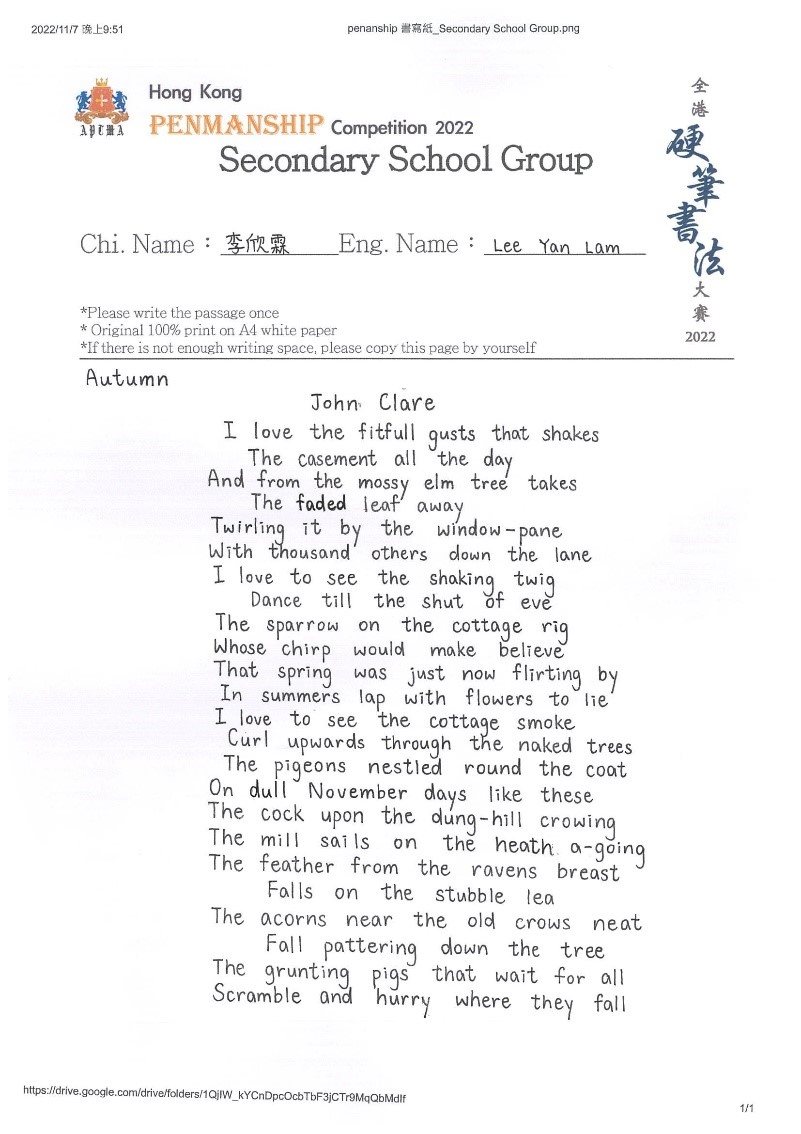 2022/11/7 晚上9:51
penanship 書寫紙_Secondary School Group.png
APTMA
Hong Kong
PENMANSHIP Competition 2022
Secondary School Group
全港硬筆書法大賽
2022
Chi. Name : 李欣霖 Eng. Name : Lee Yan Lam
*Please write the passage once
* Original 100% print on A4 white paper
*If there is not enough writing space, please copy this page by yourself
Autumn
John Clare
I love the fitfull gusts that shakes
The casement all the day
And from the mossy elm tree takes
The faded leaf away
Twirling it by the window-pane
With thousand others down the lane
I love to see the shaking twig
Dance till the shut of eve
The sparrow on the cottage rig
Whose chirp would make believe
That spring was just now flirting by
In summers lap with flowers to lie
I love to see the cottage smoke
Curl upwards through the naked trees
The pigeons nestled round the coat
On dull November days like these
The cock upon the dung-hill crowing
The mill sails on the heath a-going
The feather from the ravens breast
Falls on the stubble lea
The acorns near the old crows neat
Fall pattering down the tree
The grunting pigs that wait for all
Scramble and hurry where they fall
1/1